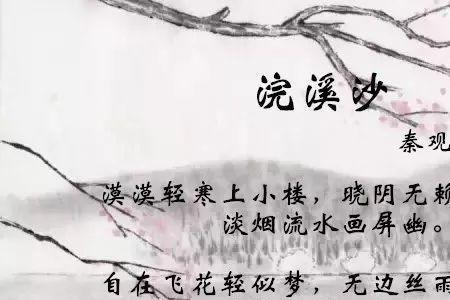 浣溪沙
秦观
漠漠轻寒上小楼，晓阴无赖
淡烟流水画屏幽。
自在飞花轻似梦，无边丝雨